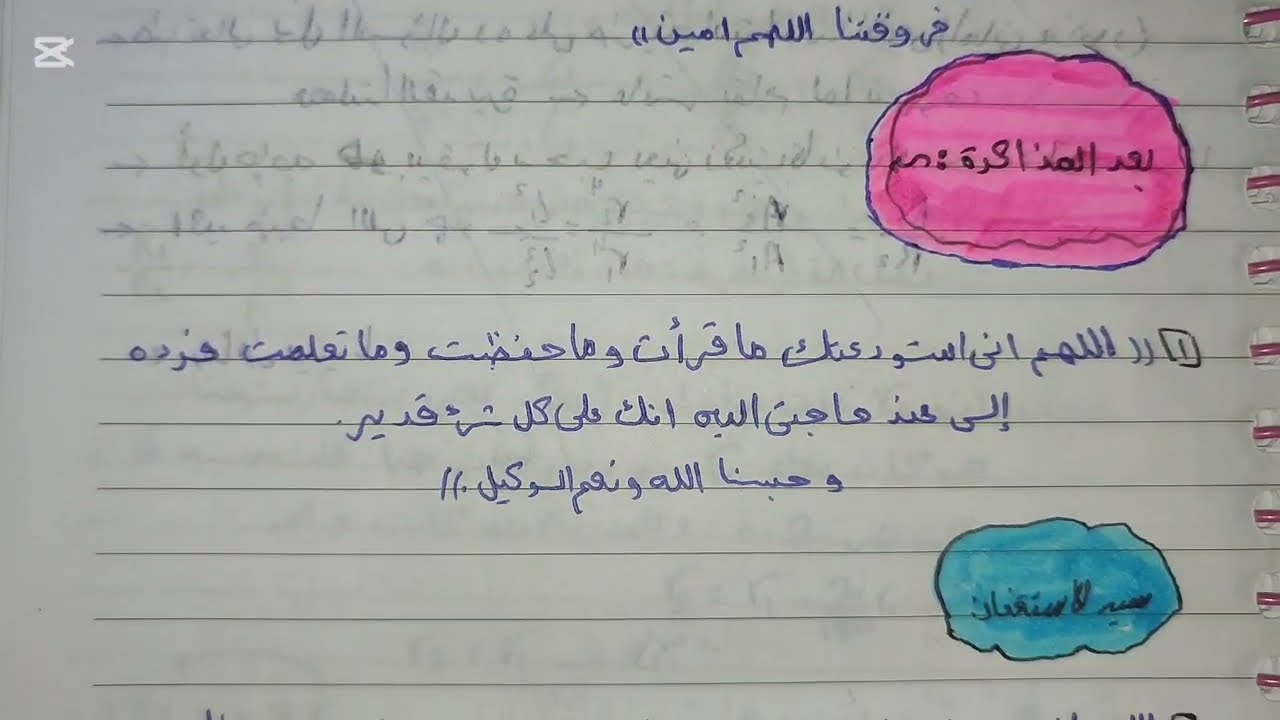 فى وقتنا اللهم امين))
بعد المذاكرة :ـ
[١] (( اللهم انى استودعتك ما قرأت وما حفظت وما تعلمت فرده
إلى عند حاجتى اليه انك على كل شئ قدير.
وحسبنا الله ونعم الوكيل.))
سيد الاستغفار